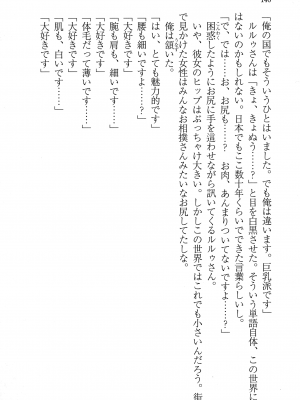 140
俺の国でもそういうひとはいました。でも俺は違います。巨乳派です」
ルルゥさんは「きょ、きょぬう……？」と目を白黒させた。そういう単語自体、この世界に
はないのかもしれない。日本でもここ数十年くらいでできた言葉らしいし。
「で、では……お、お尻も……？　お肉、あんまりついてないですよ……？」
困惑したようにお尻に手を這わせながら訊いてくるルルゥさん。
いや、彼女のヒップはぶっちゃけ大きい。しかしこの世界ではこれでも小さいんだろう。街
で見かけた女性はみんなお相撲さんみたいなお尻してたしな。
俺は頷いた。
「はい、とても魅力的です」
「腰も細いですよ……？」
「大好きです」
「腕も肩も、細い……です……」
「大好きです」
「体毛だって薄いです……」
「大好きです」
「肌も、白いです……」
「大好きです」